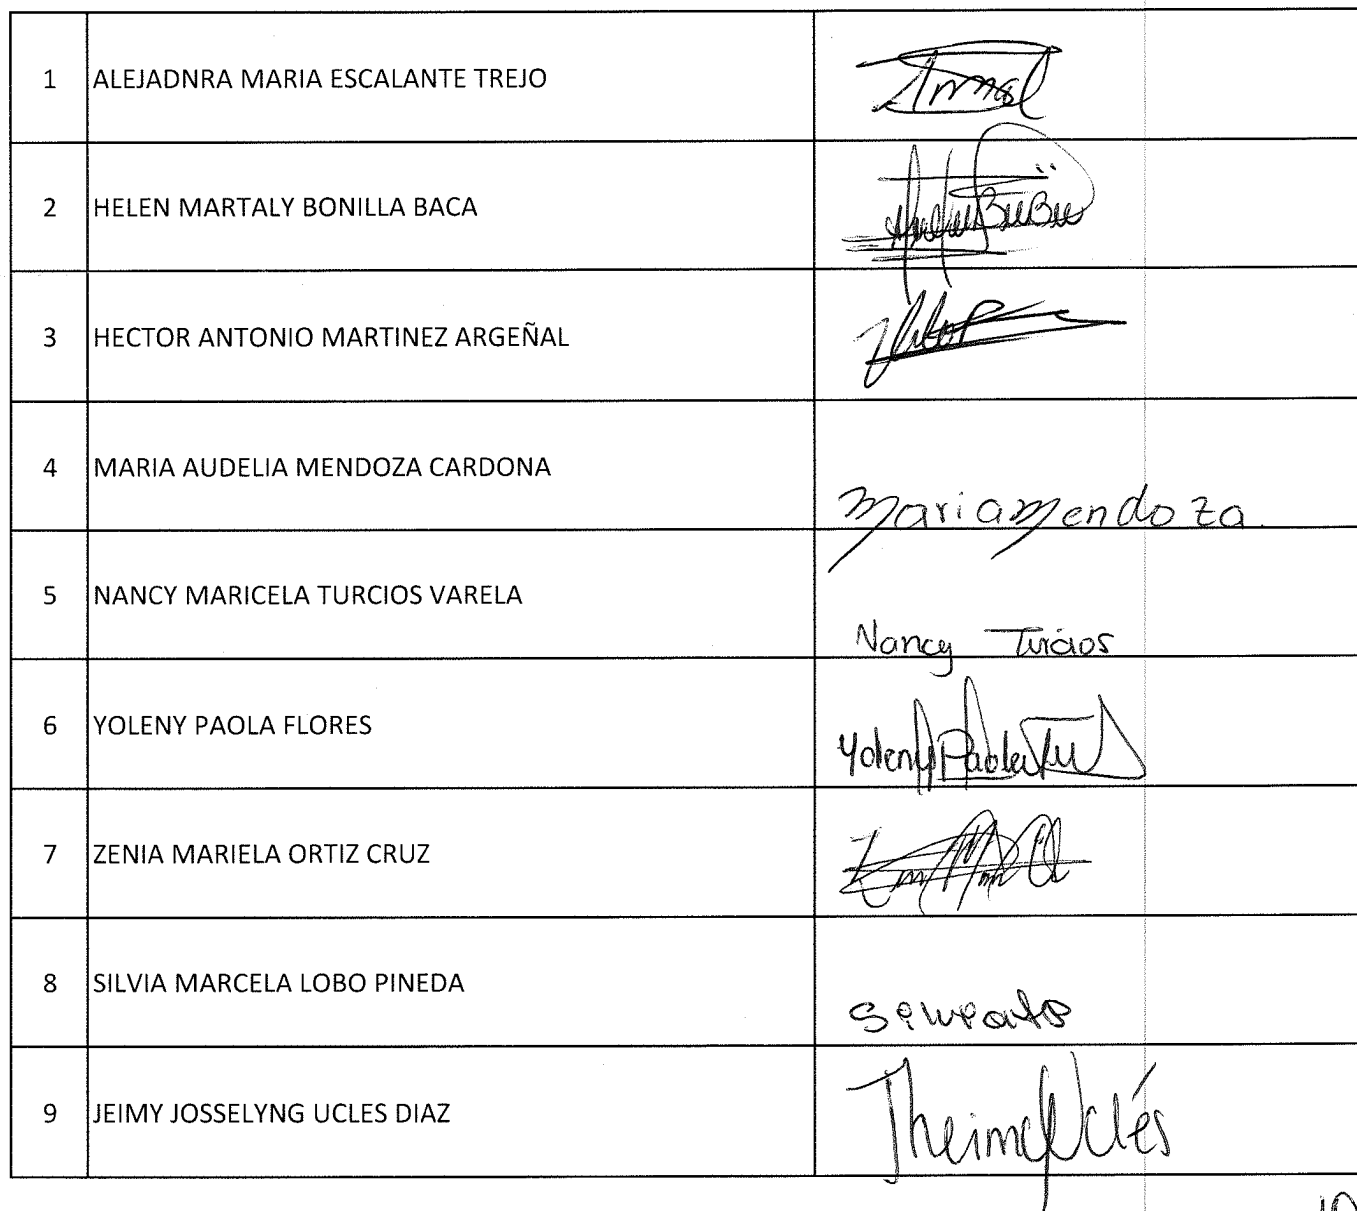 1 ALEJADNRA MARIA ESCALANTE TREJO
2 HELEN MARTALY BONILLA BACA
3 HECTOR ANTONIO MARTINEZ ARGEÑAL
4 MARIA AUDELIA MENDOZA CARDONA
Maria Mendoza
5 NANCY MARICELA TURCIOS VARELA
Nancy Turcios
6 YOLENY PAOLA FLORES
Yoleny Paola
7 ZENIA MARIELA ORTIZ CRUZ
8 SILVIA MARCELA LOBO PINEDA
9 JEIMY JOSSELYNG UCLES DIAZ
Uclés